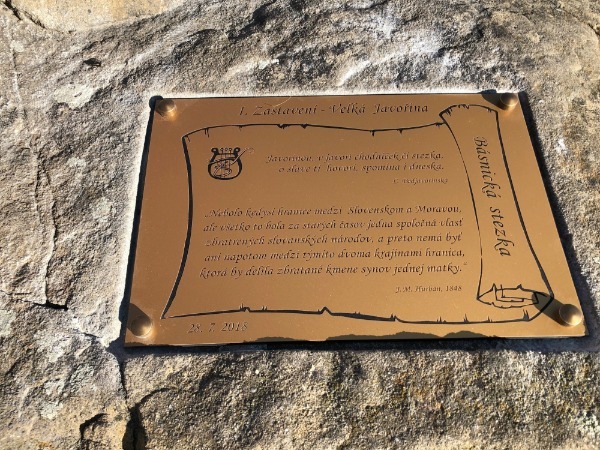 1. Zastavení - Velká Javořina
Javorinou, v javorí chodníček či stezka,
o sláve tí hovorí, spomína i dneska.
Básnická stezka
„Nebolo kedysi hranice medzi Slovenskom a Moravou,
ale všetko to bola za starých časov jedna spoločná vlasť
zbratrených slovanských národov, a preto nemá byť
ani napotom medzi týmito dvoma krajinami hranica,
ktorá by delila zbratané kmene synov jednej matky.“
J. M. Hurban, 1848
28. 7. 2018